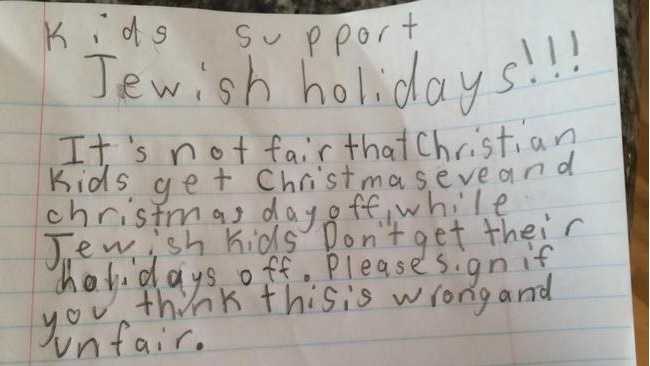 Kids support
Jewish holidays!!!
It's not fair that Christian
Kids get Christmas eve and
christmas day off, while
Jewish Kids Don't get their
holidays off. Please sign if
you think this is wrong and
unfair.